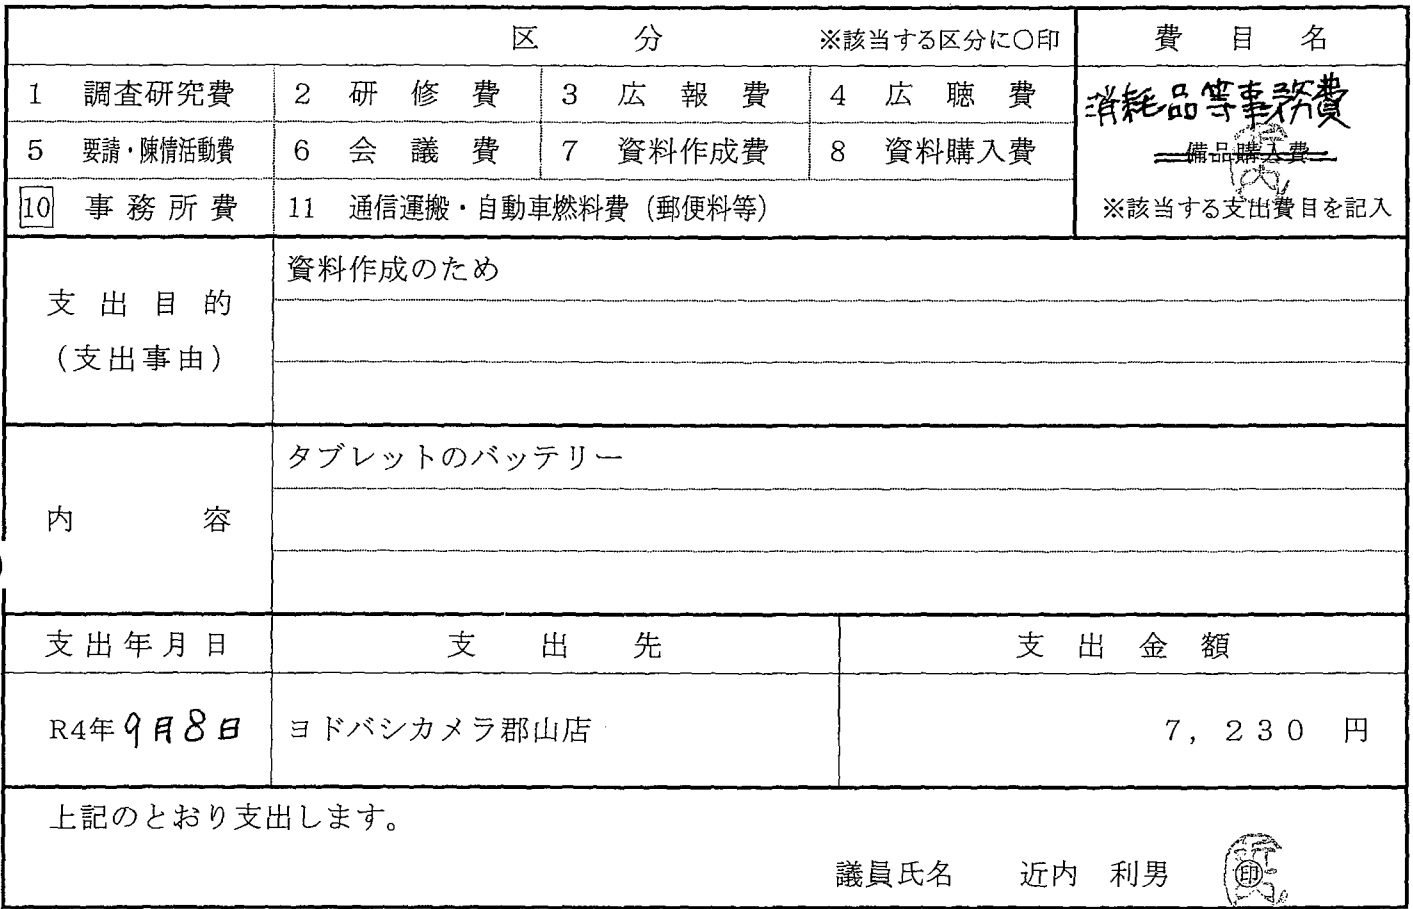 区 分 ※該当する区分に○印
費 目 名
1 調査研究費 2 研 修 費 3 広 報 費 4 広 聴 費
消耗品等事務費
5 要請・陳情活動費 6 会 議 費 7 資料作成費 8 資料購入費
備品購入費
10 事 務 所 費 11 通信運搬・自動車燃料費（郵便料等）
※該当する支出費目を記入
支 出 目 的
（支出事由）
資料作成のため
内 容
タブレットのバッテリー
支 出 年 月 日 支 出 先 支 出 金 額
R4年9月8日 ヨドバシカメラ郡山店 7，230 円
上記のとおり支出します。
議員氏名 近内 利男 印